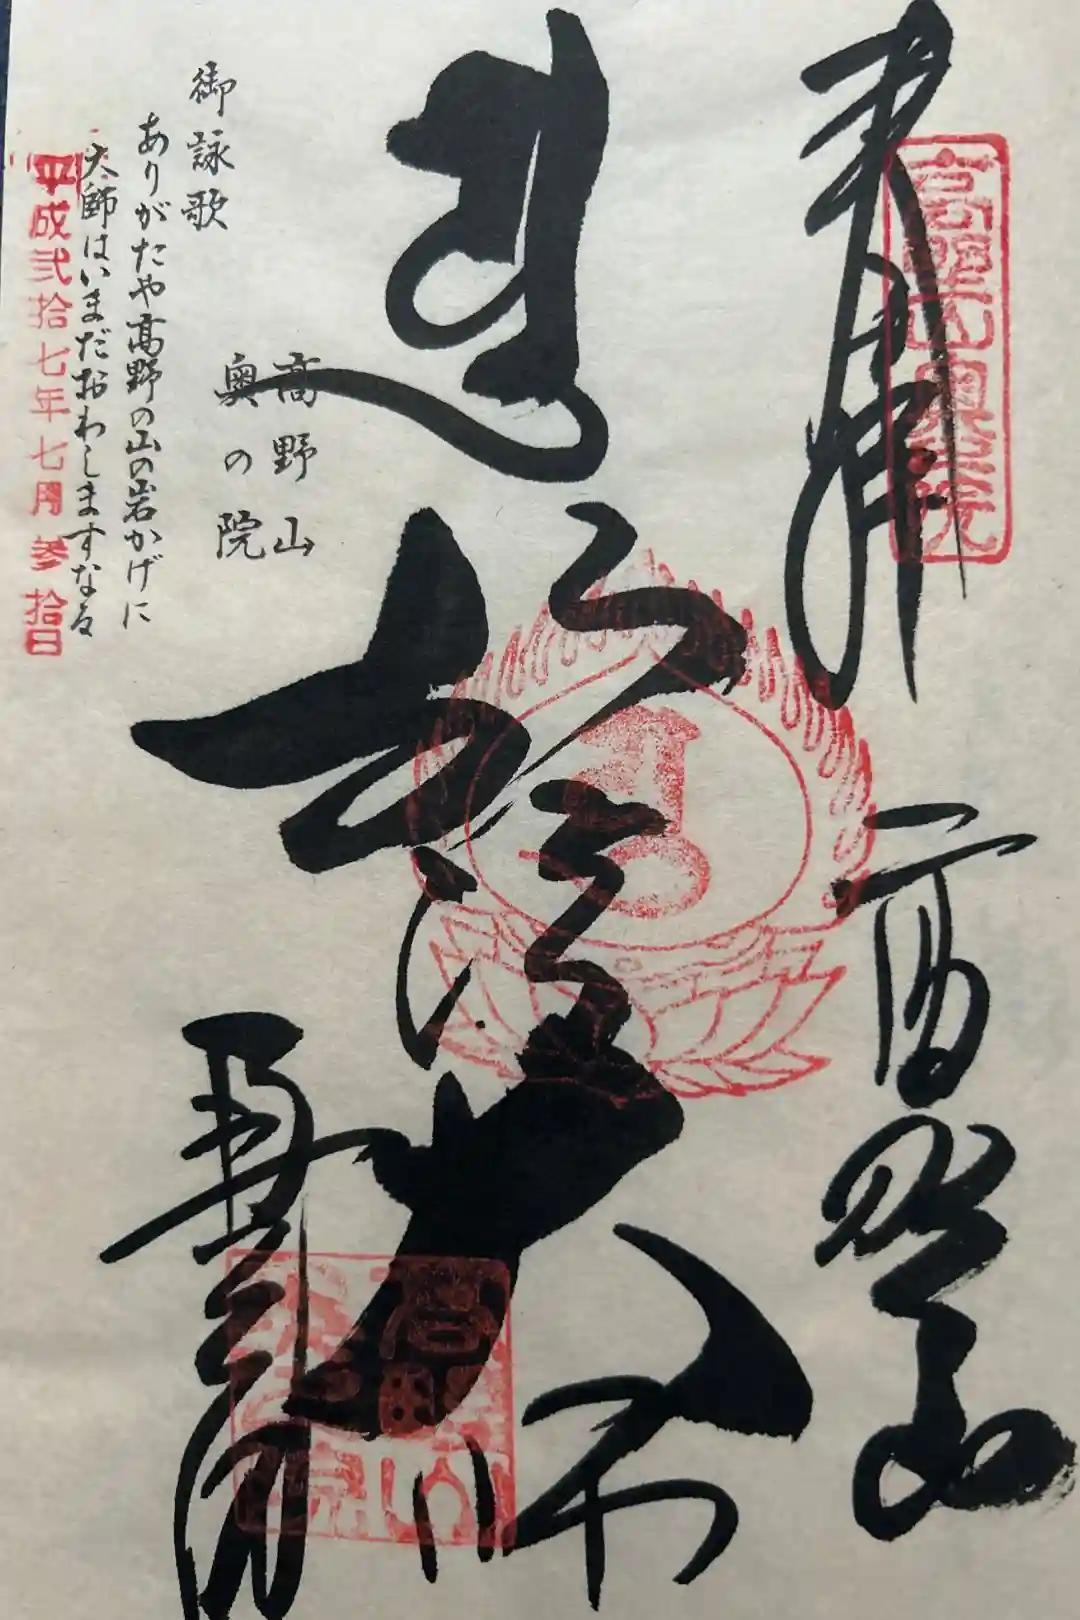 奉拝
高野山
高野山奥之院
弘法大師
高野山
奥の院
御詠歌
ありがたや高野の山の岩かげに
大師はいまだおわしますなる
平成弐拾七年七月参拾日